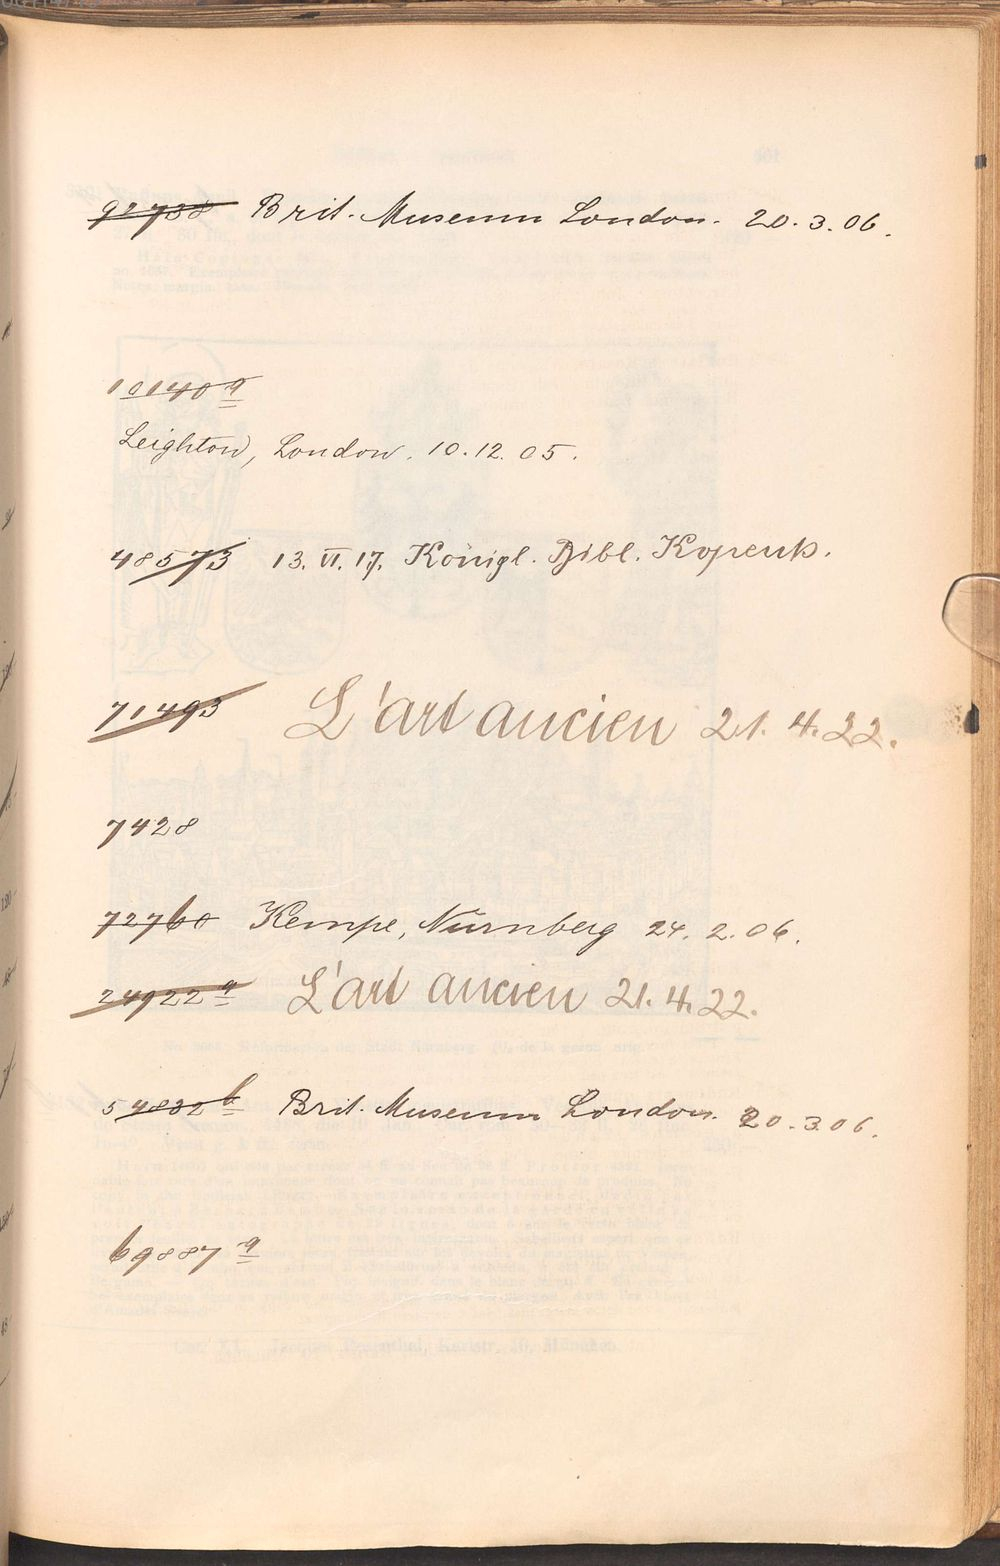 92738 Brit. Museum London. 20.3.06.
10140 a
Leighton, London. 10.12.05.
48573 13.VI.17. Königl. Bibl. Kopenh.
71493 L'art ancien 21.4.22.
7428
72760 Kempe, Nürnberg 24.2.06.
24922 a L'art ancien 21.4.22.
54832 b Brit. Museum London. 20.3.06.
69887 a